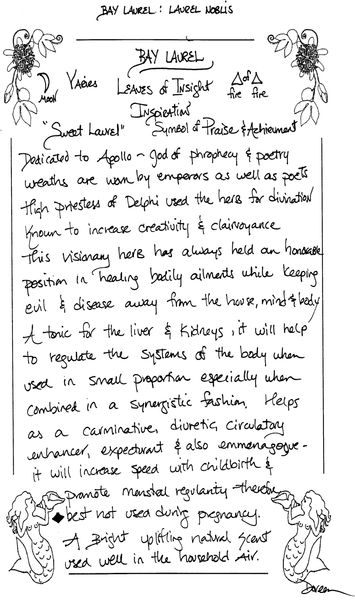 BAY LAUREL : LAUREL NOBLIS
BAY LAUREL
MOON
Varies
LEAVES of Insight
△ of △
fire fire
Inspiration
"Sweet Laurel" Symbol of Praise & Achievement
Dedicated to Apollo ~ god of phrophecy & poetry
weaths are worn by emperors as well as poets
High priestess of Delphi used the herb for divination
Known to increase creativity & clairvoyance
This visionary herb has always held an honorable
position in healing bodily ailments while keeping
evil & disease away from the house, mind & body
A tonic for the liver & kidneys, it will help
to regulate the systems of the body when
used in small proportion especially when
combined in a synergistic fashion. Helps
as a carminative, diuretic, circulatory
enhancer, expecturant & also emmenagogue -
it will increase speed with childbirth &
promote menstral regularity - thereby
◆ best not used during pregnancy.
A Bright uplifting natural scent
used well in the household air.
Doreen